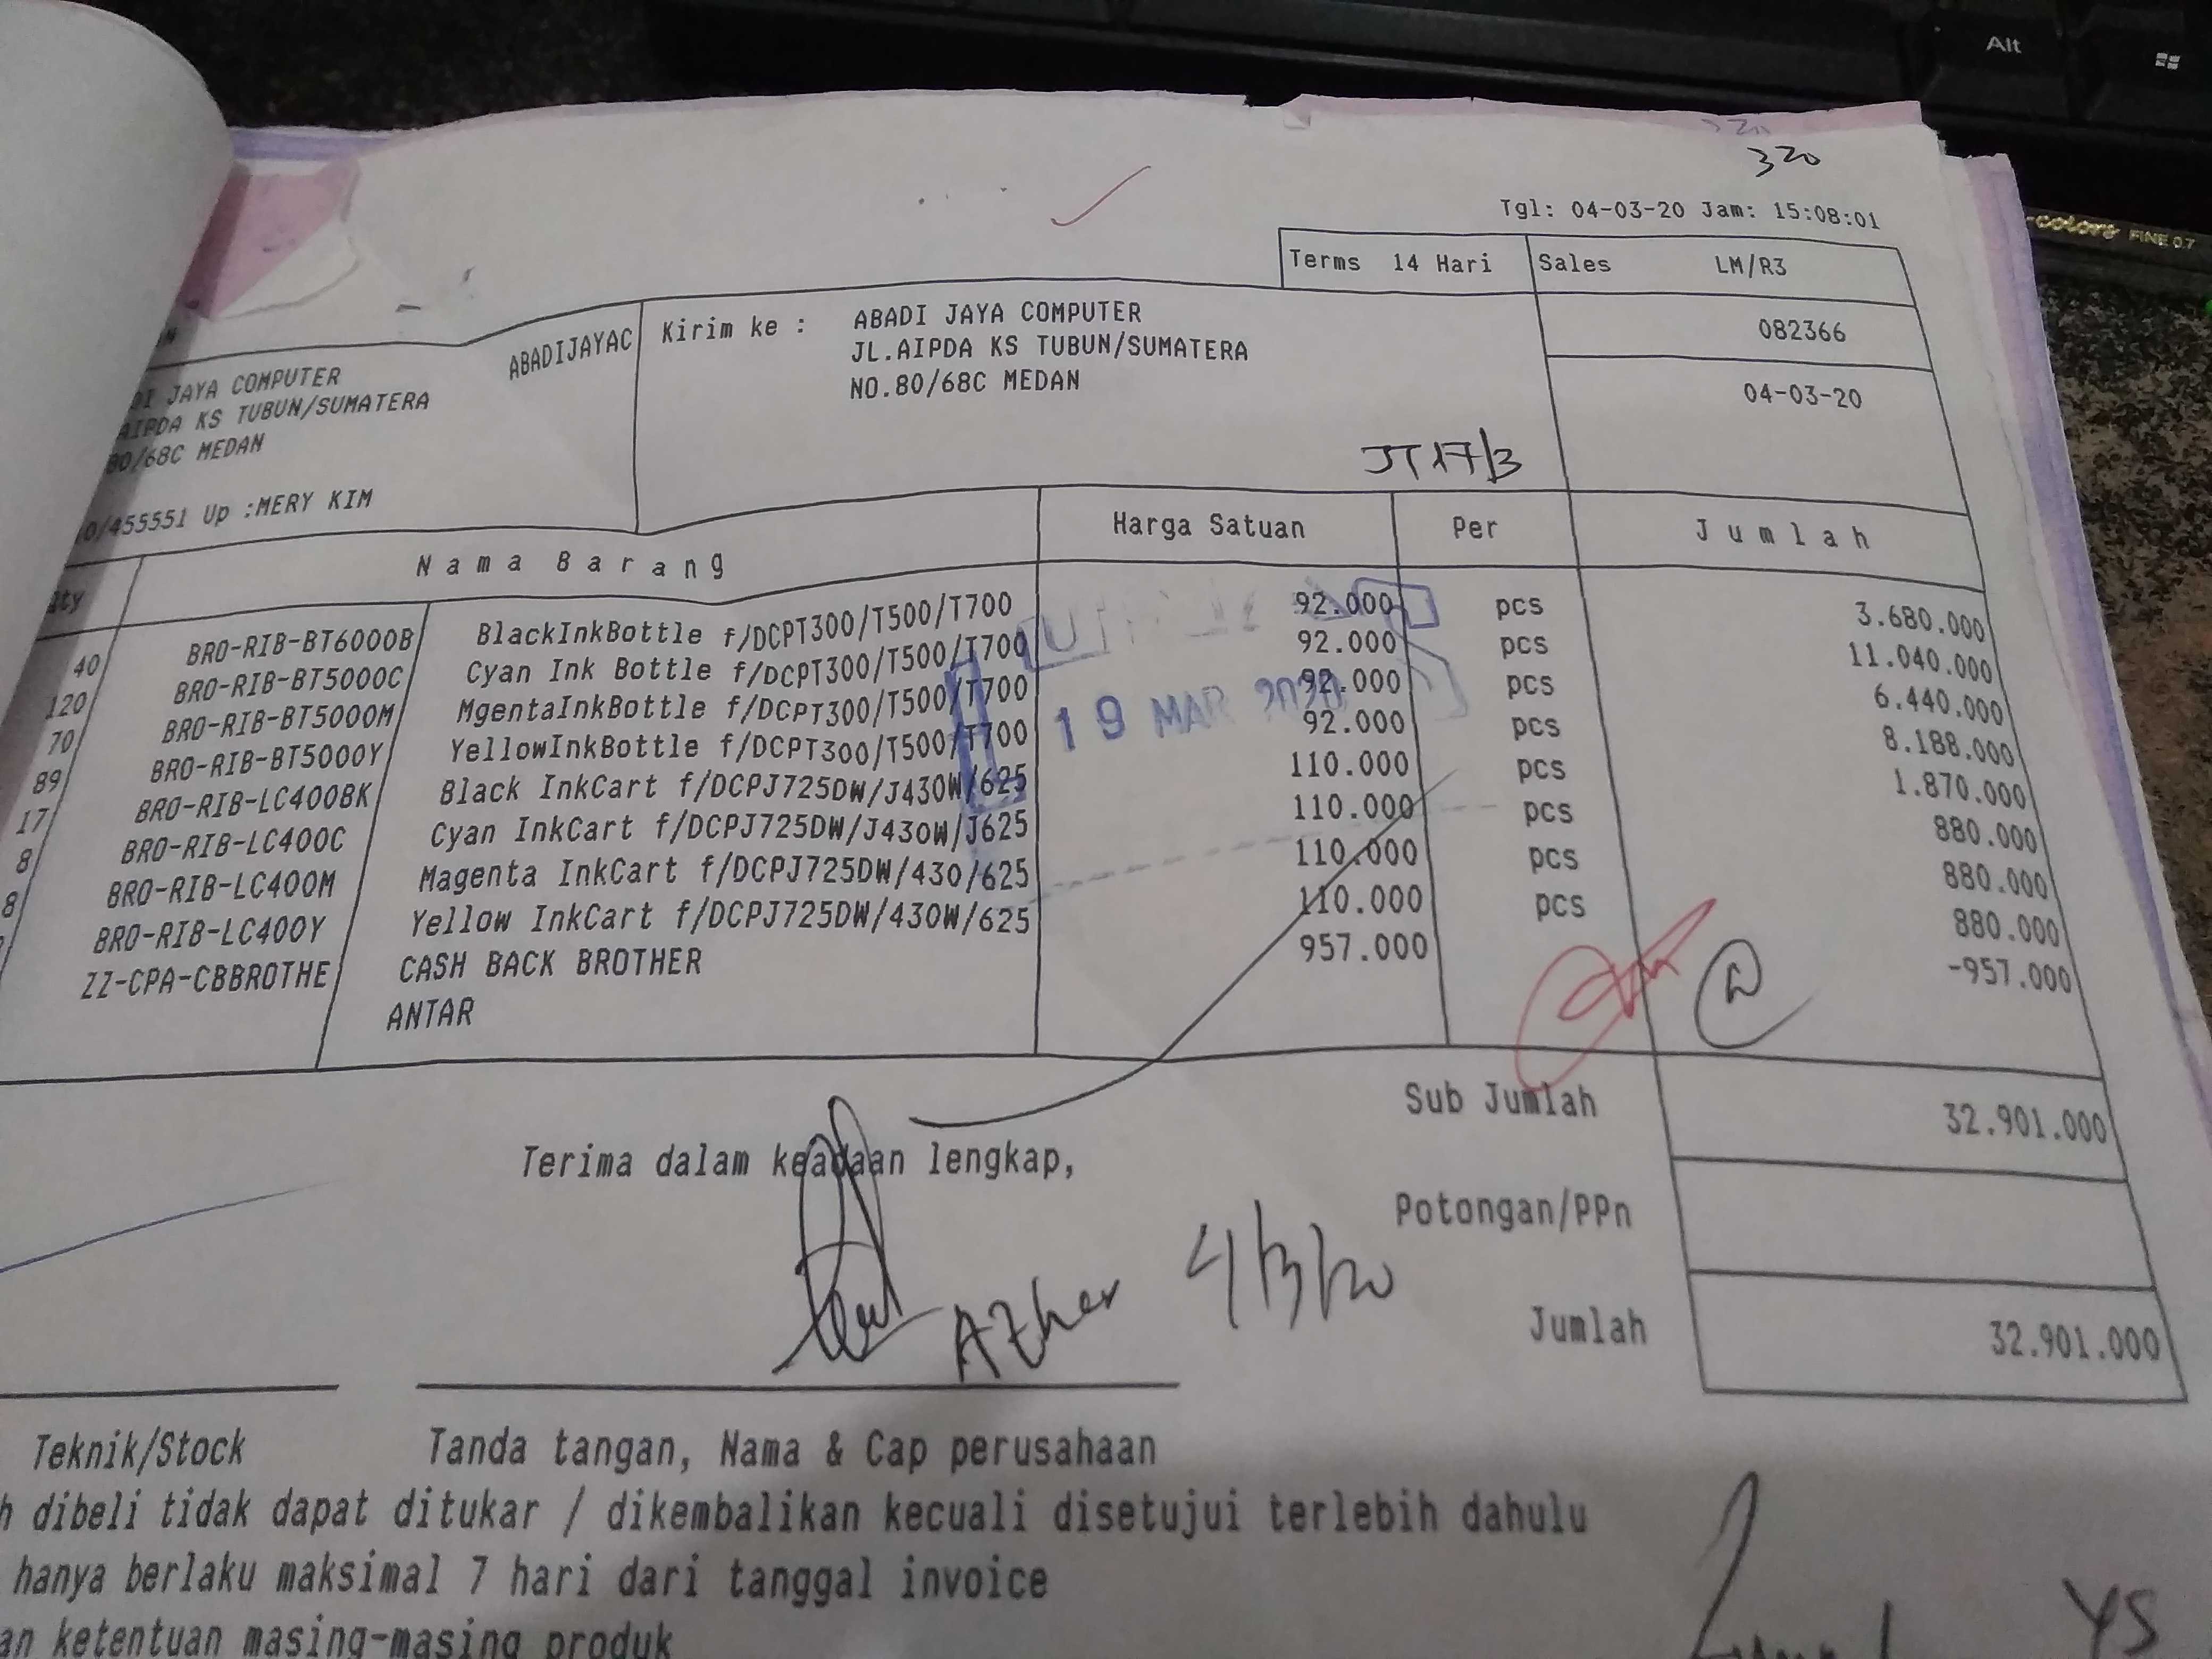 Alt
320
Tgl: 04-03-20 Jam: 15:08:01
-colors FINE 0.7
Terms 14 Hari Sales LM/R3
ABADIJAYAC Kirim ke : ABADI JAYA COMPUTER 082366
DI JAYA COMPUTER JL.AIPDA KS TUBUN/SUMATERA
AIPDA KS TUBUN/SUMATERA NO.80/68C MEDAN 04-03-20
80/68C MEDAN
JT 17/3
0/455551 Up :MERY KIM
Qty Nama Barang Harga Satuan Per Jumlah
40 BRO-RIB-BT6000B BlackInkBottle f/DCPT300/T500/T700 92.000 pcs 3.680.000
120 BRO-RIB-BT5000C Cyan Ink Bottle f/DCPT300/T500/T700 92.000 pcs 11.040.000
70 BRO-RIB-BT5000M MgentaInkBottle f/DCPT300/T500/T700 92.000 pcs 6.440.000
89 BRO-RIB-BT5000Y YellowInkBottle f/DCPT300/T500/T700 92.000 pcs 8.188.000
17 BRO-RIB-LC400BK Black InkCart f/DCPJ725DW/J430W/625 110.000 pcs 1.870.000
8 BRO-RIB-LC400C Cyan InkCart f/DCPJ725DW/J430W/J625 110.000 pcs 880.000
8 BRO-RIB-LC400M Magenta InkCart f/DCPJ725DW/430/625 110.000 pcs 880.000
BRO-RIB-LC400Y Yellow InkCart f/DCPJ725DW/430W/625 110.000 pcs 880.000
ZZ-CPA-CBBROTHE CASH BACK BROTHER 957.000 -957.000
ANTAR
19 MAR 2020
Sub Jumlah 32.901.000
Terima dalam keadaan lengkap,
Potongan/PPn
Azher 4/3/20
Jumlah 32.901.000
Teknik/Stock Tanda tangan, Nama & Cap perusahaan
h dibeli tidak dapat ditukar / dikembalikan kecuali disetujui terlebih dahulu
hanya berlaku maksimal 7 hari dari tanggal invoice
an ketentuan masing-masing produk
YS